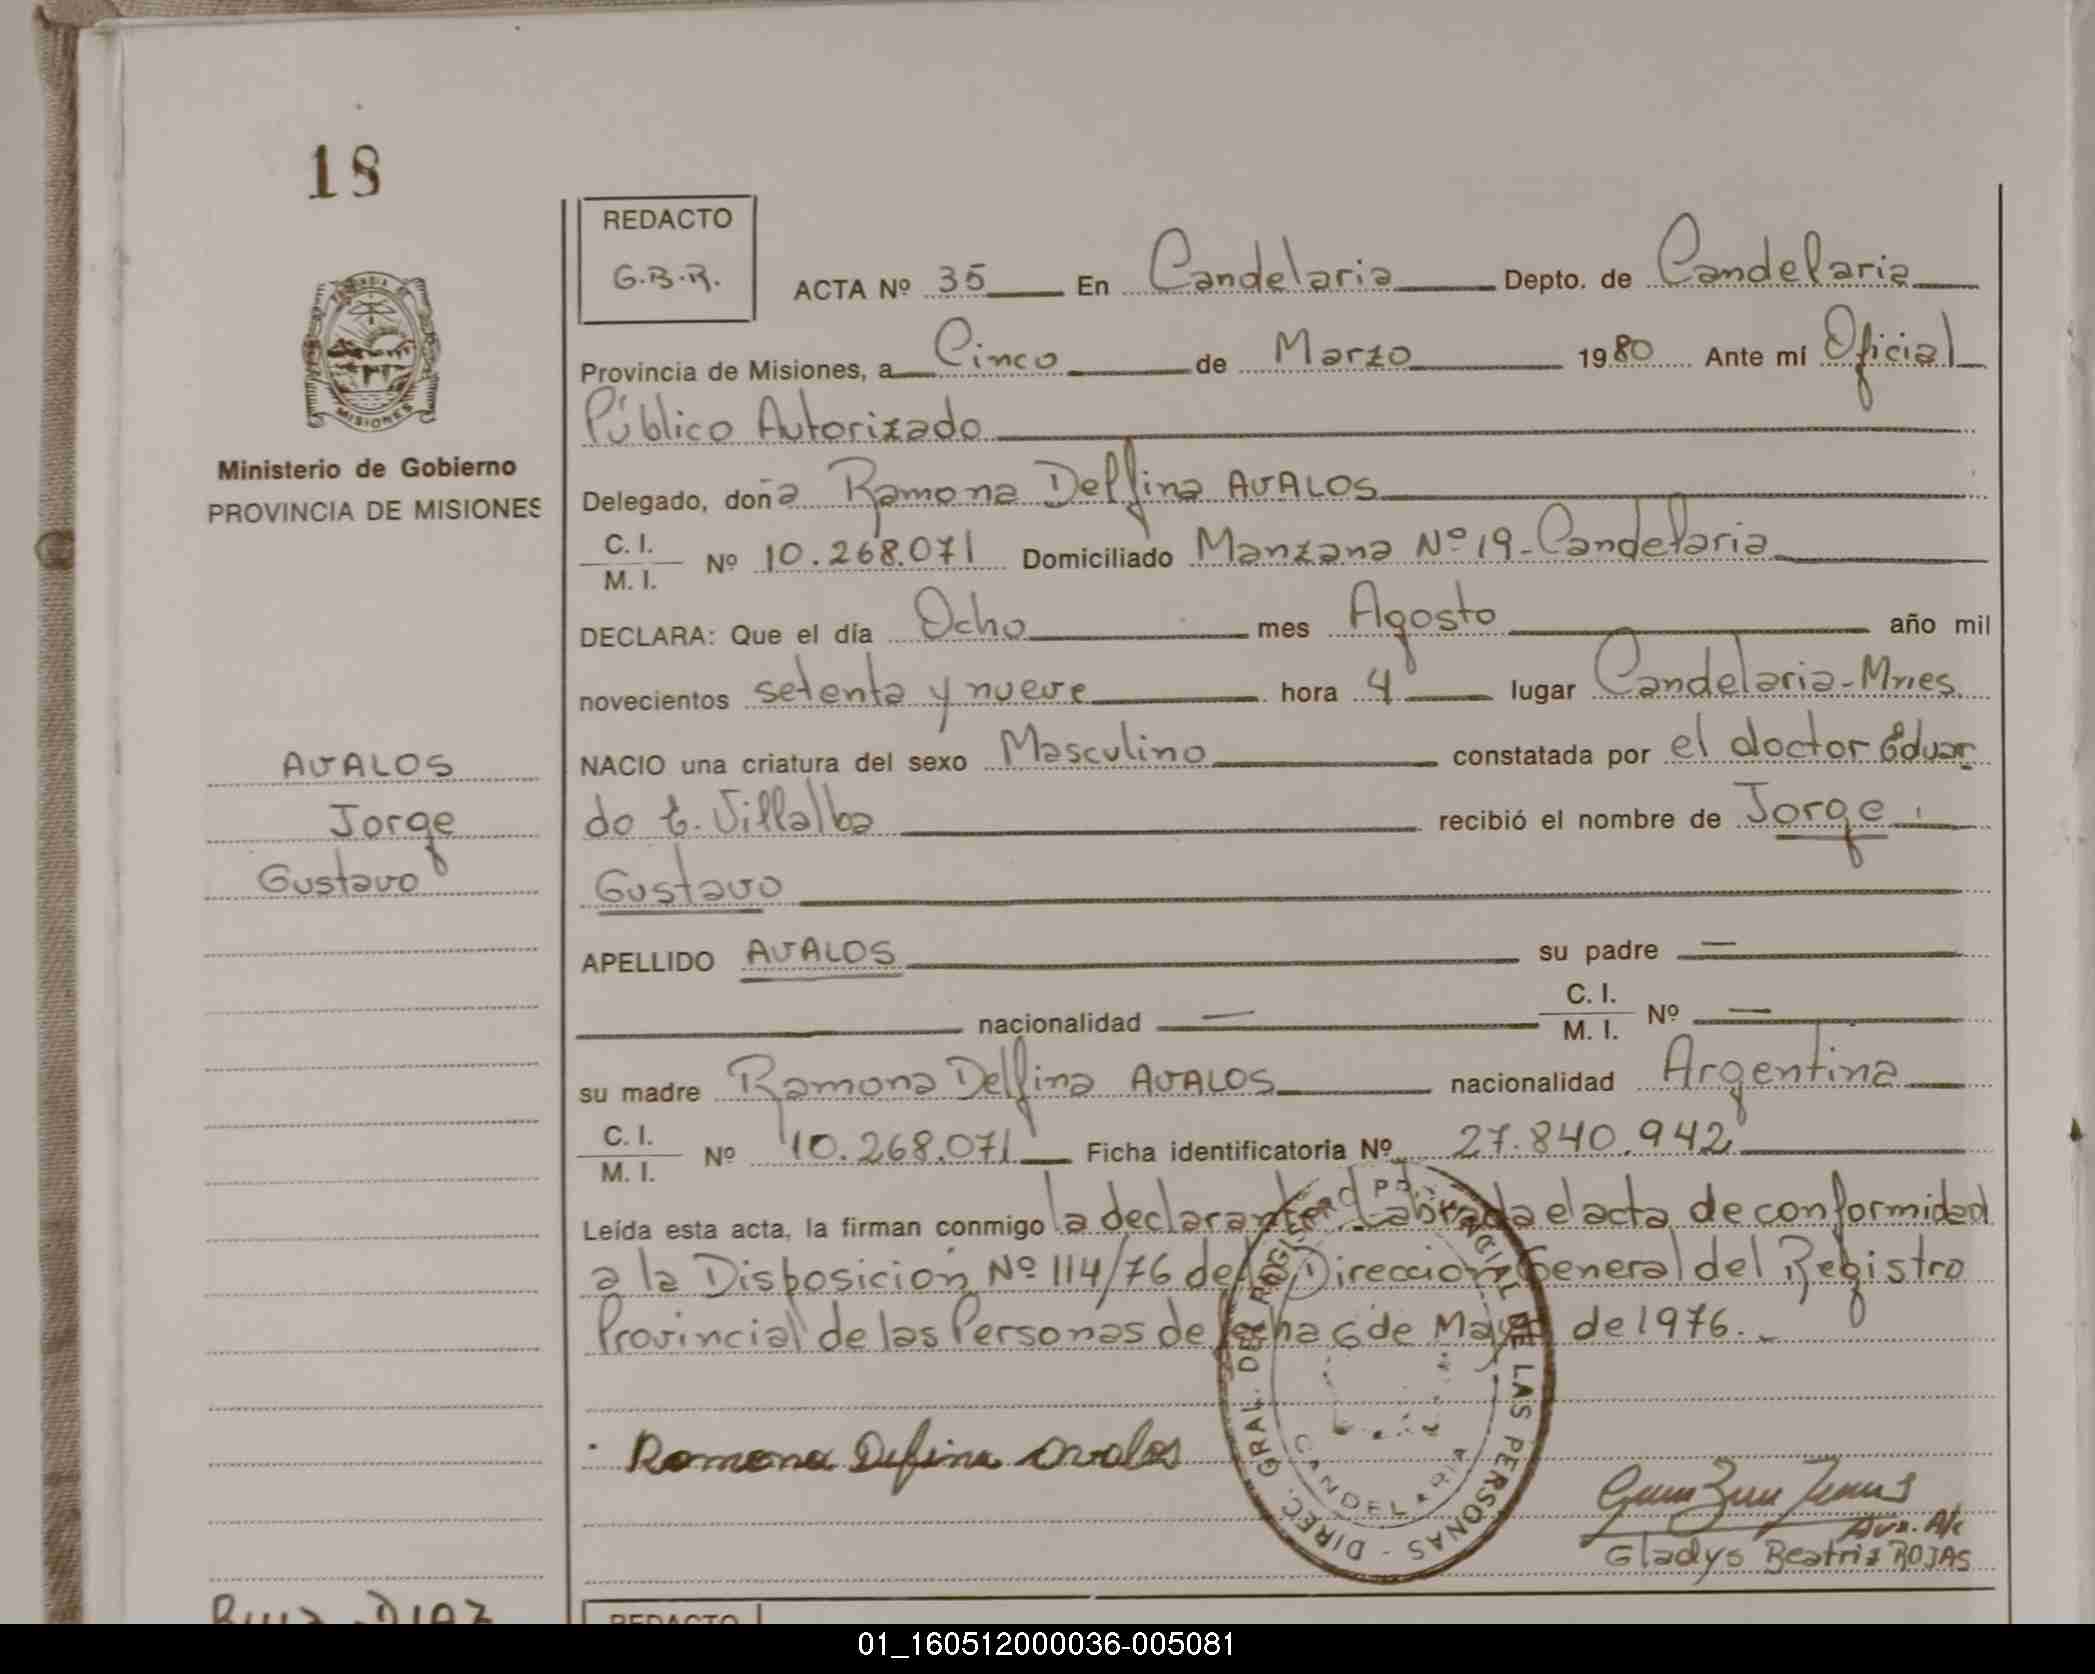 18
REDACTO
G.B.R.
ACTA Nº 35 En Candelaria Depto. de Candelaria
Provincia de Misiones, a Cinco de Marzo 1980 Ante mí Oficial
Público Autorizado
MISIONES
Ministerio de Gobierno
PROVINCIA DE MISIONES
Delegado, doña Ramona Delfina AVALOS
C. I.
M. I. Nº 10.268.071 Domiciliado Manzana Nº 19-Candelaria
DECLARA: Que el día Ocho mes Agosto año mil
novecientos setenta y nueve hora 4 lugar Candelaria-Mnes.
AVALOS
Jorge
Gustavo
NACIO una criatura del sexo Masculino constatada por el doctor Eduar
do E. Villalba recibió el nombre de Jorge
Gustavo
APELLIDO AVALOS su padre —
nacionalidad — C. I.
M. I. Nº —
su madre Ramona Delfina AVALOS nacionalidad Argentina
C. I.
M. I. Nº 10.268.071 Ficha identificatoria Nº 27.840.942
Leída esta acta, la firman conmigo la declarante. Labrada el acta de conformidad
a la Disposición Nº 114/76 de la Dirección General del Registro
Provincial de las Personas de fecha 6 de Mayo de 1976.
DIREC. GRAL. DEL REGIST. PROVINCIAL DE LAS PERSONAS -
CANDELARIA
Ramona Delfina Avalos
Gladys Beatriz ROJAS
RUIZ DIAZ
REDACTO
01_160512000036-005081